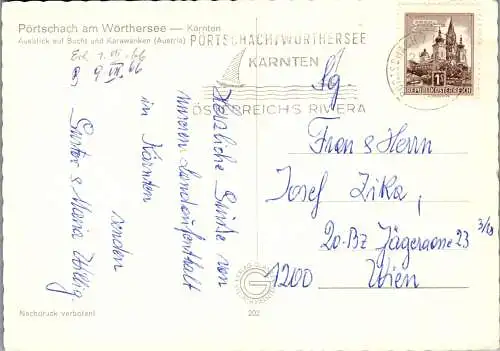 Pörtschach am Wörthersee — Kärnten
Ausblick auf Bucht und Karawanken (Austria)
PÖRTSCHACH/WÖRTHERSEE
KÄRNTEN
ÖSTERREICHS RIVIERA
REPUBLIK ÖSTERREICH
Herzliche Grüße von
unserem Landaufenthalt
in Kärnten
senden
Gustav & Maria
Sg.
Frau & Herrn
Josef Zika,
20. Bz Jägerg 23 3/18
1200 Wien
Nachdruck verboten!
202